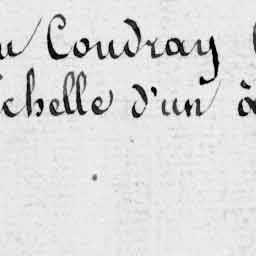 u Coudray
chelle d'un à